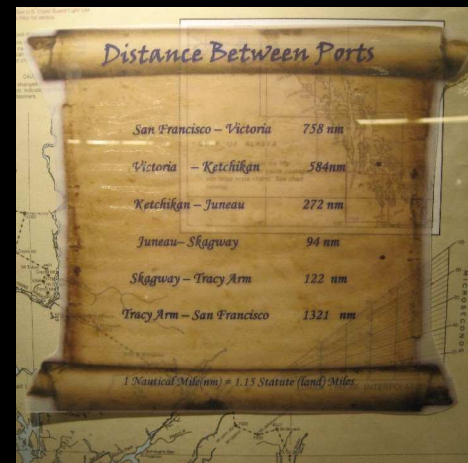 Distance Between Ports
San Francisco – Victoria 758 nm
Victoria – Ketchikan 584nm
Ketchikan – Juneau 272 nm
Juneau– Skagway 94 nm
Skagway – Tracy Arm 122 nm
Tracy Arm – San Francisco 1321 nm
1 Nautical Mile(nm) = 1.15 Statute (land) Miles
MICROSECONDS